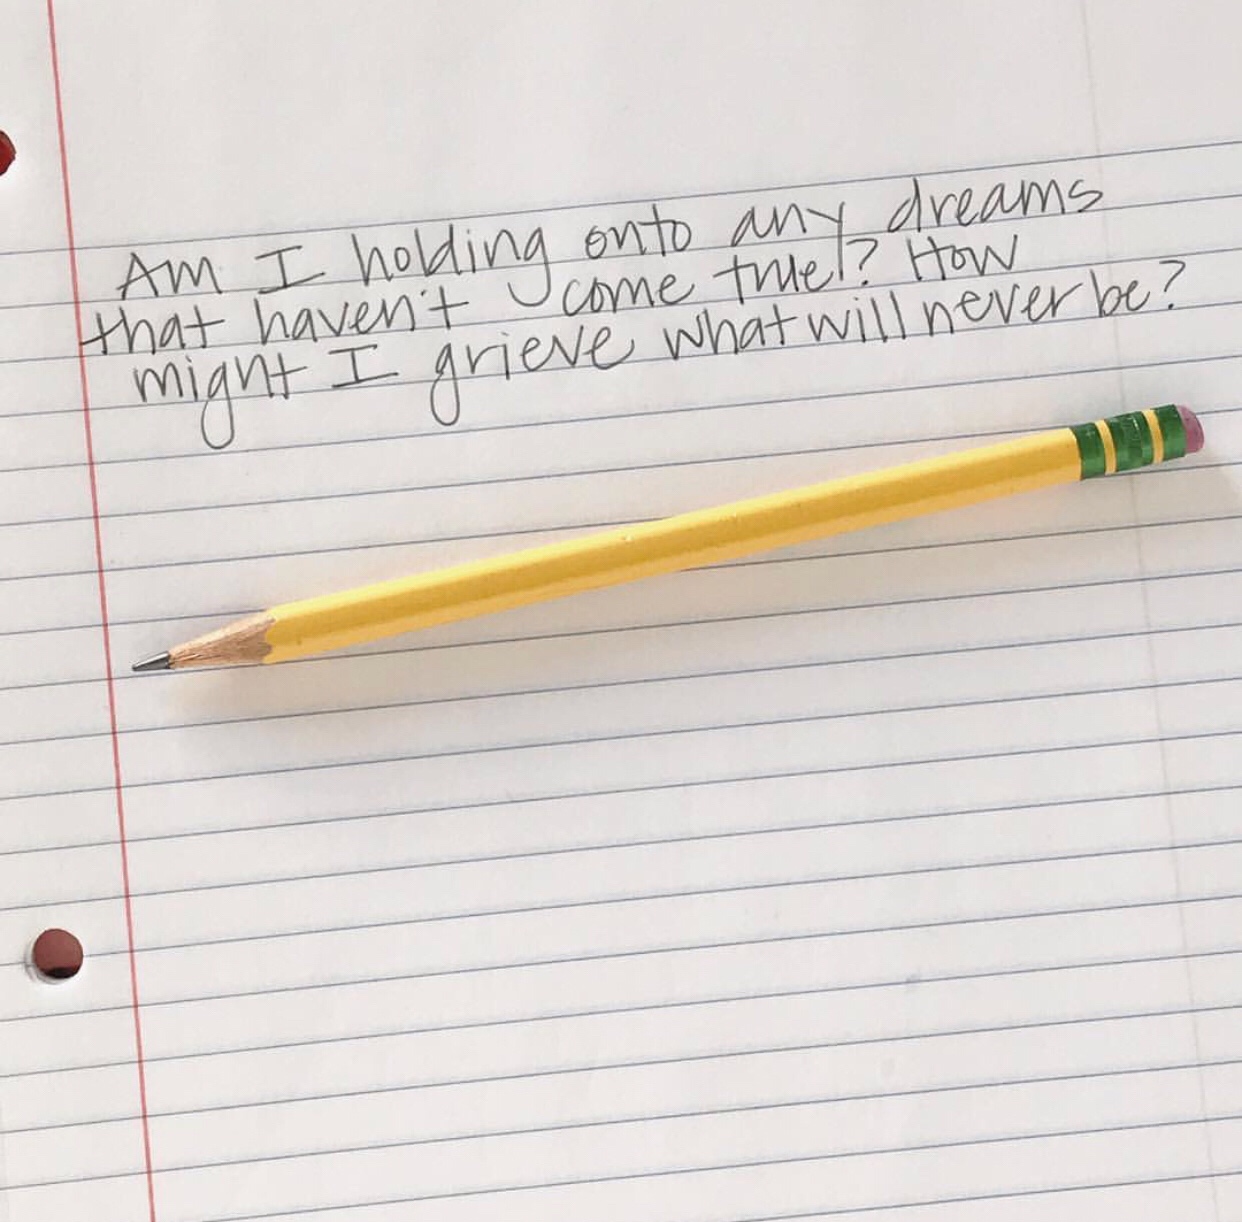 Am I holding onto any dreams
that haven't come true!? How
might I grieve what will never be?